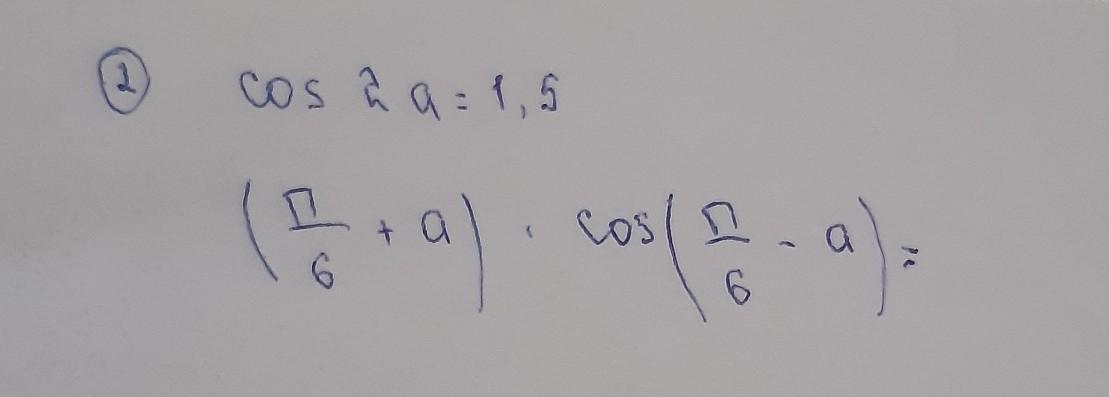 ② cos 2 a = 1,5
(π/6 + a) · cos(π/6 - a) =